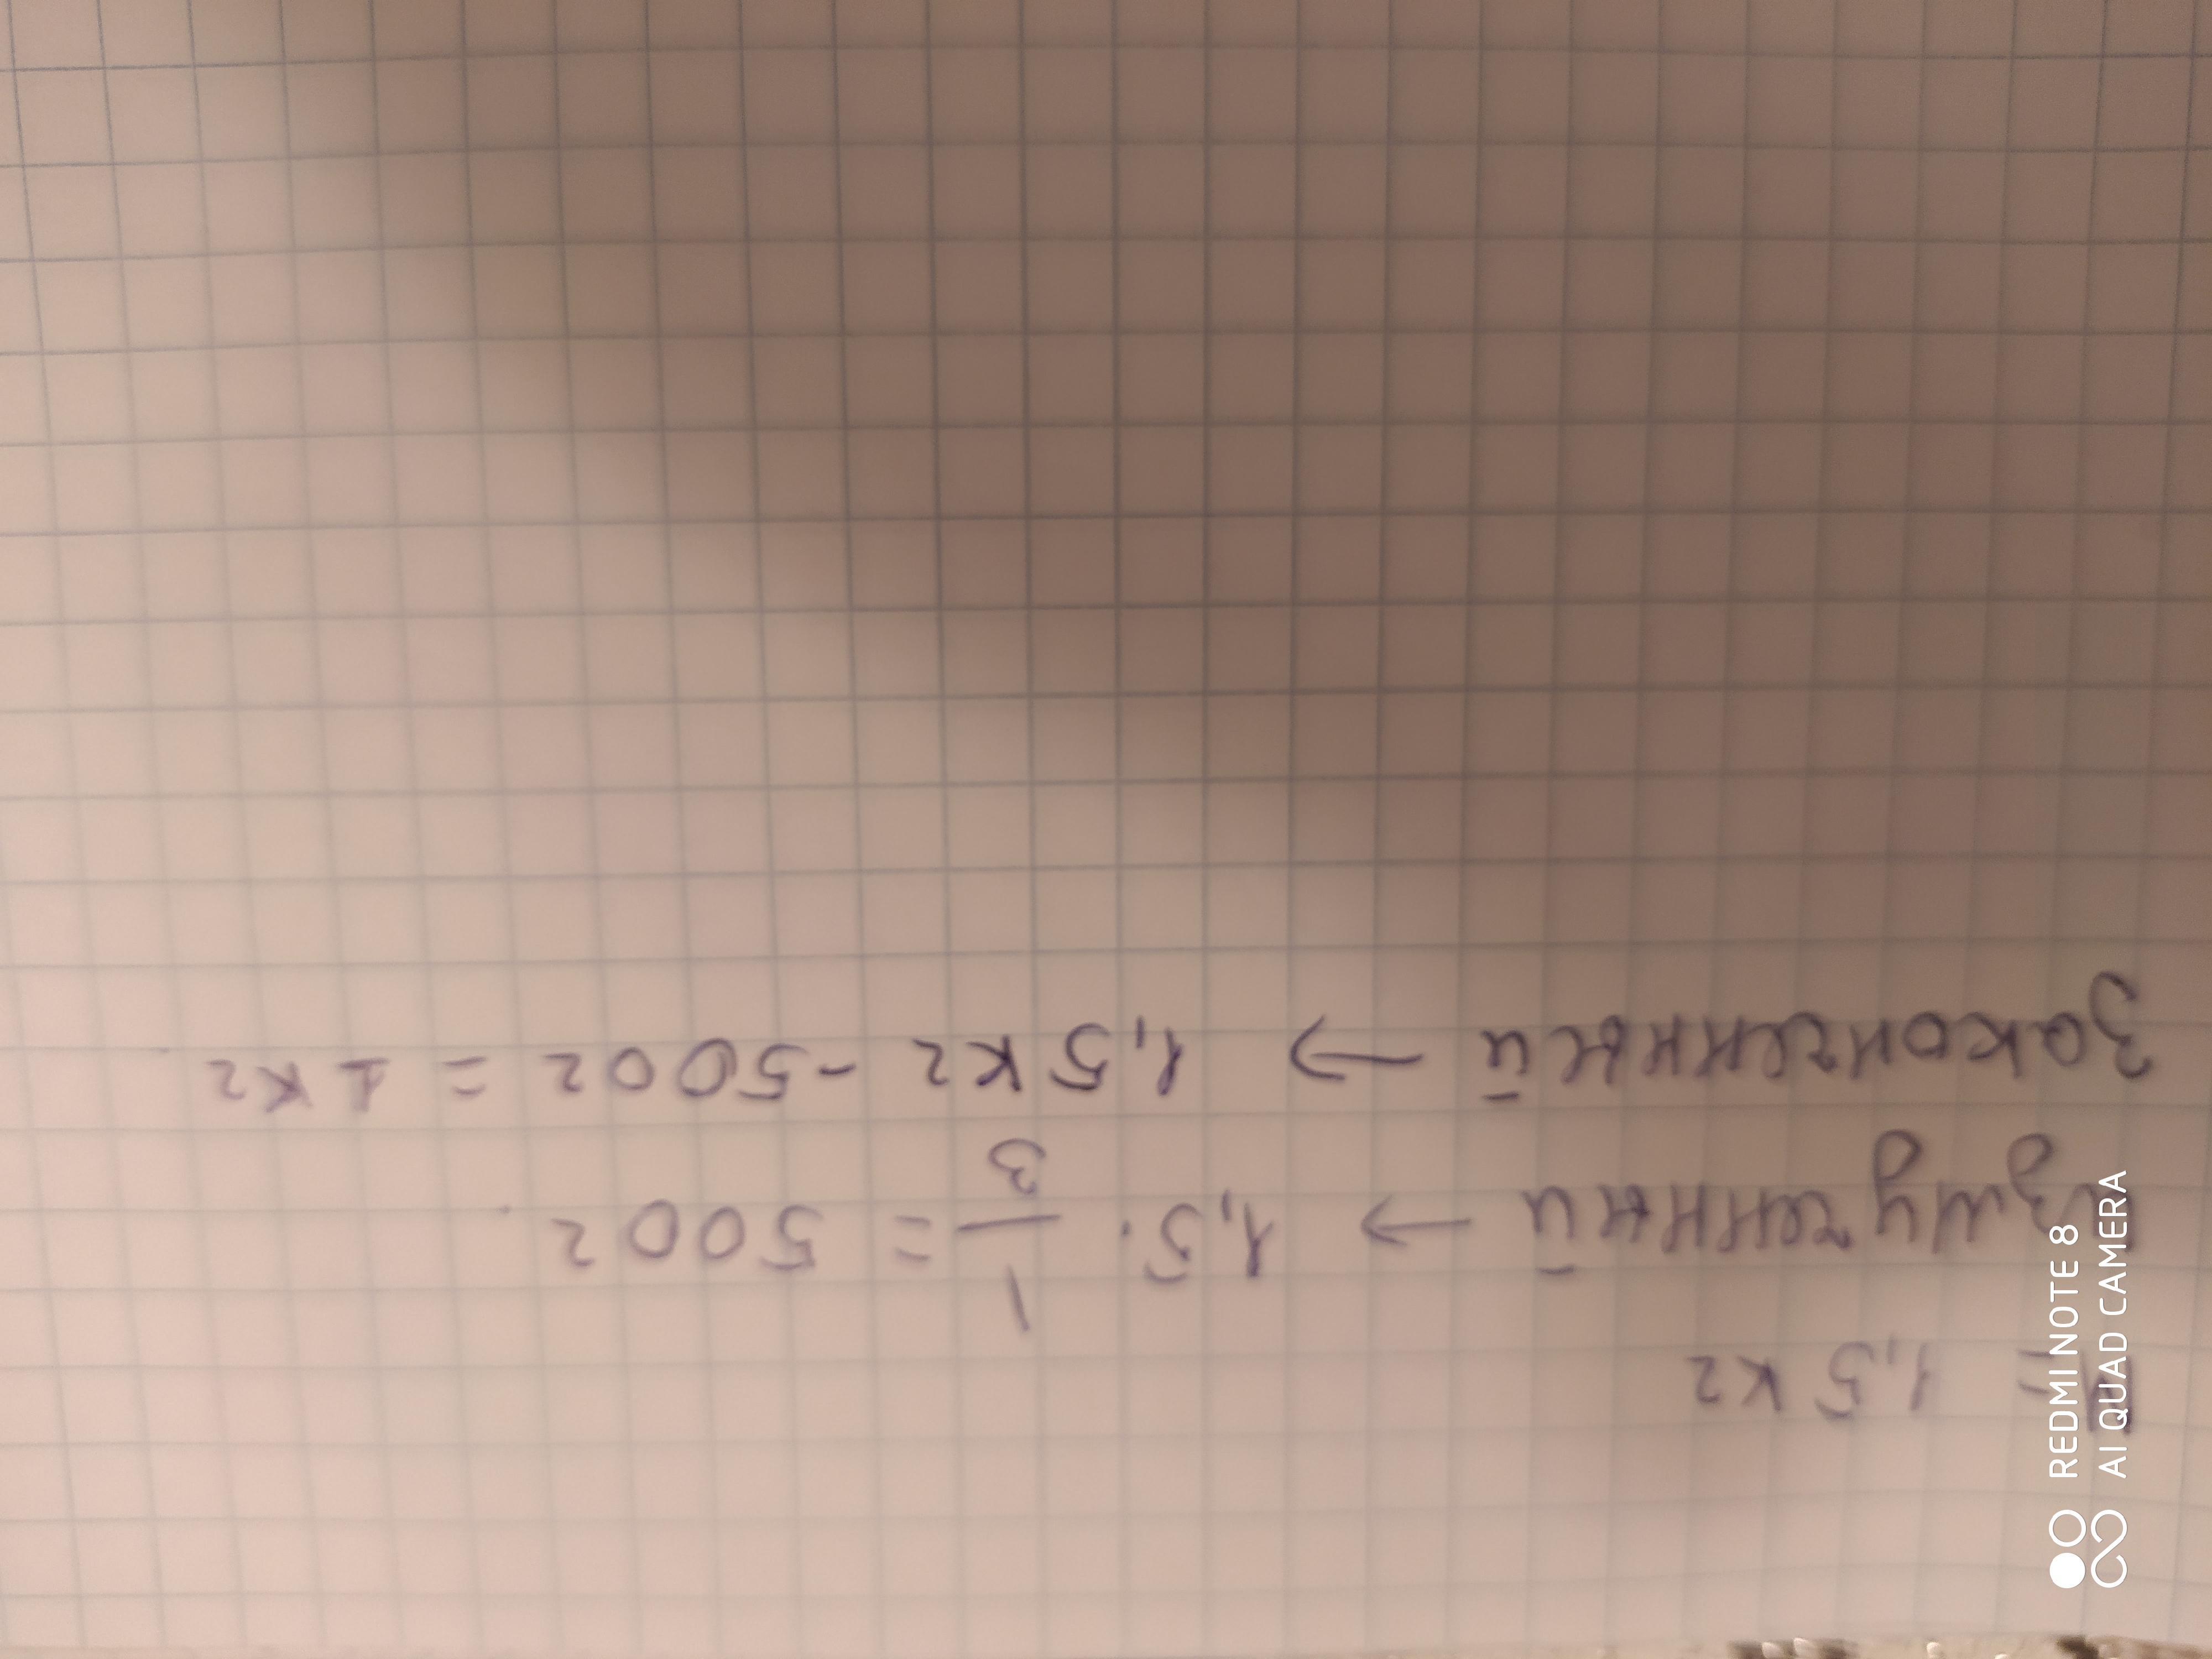 = 1,5 кг
Измученный → 1,5 · 1/3 = 500 г.
Законченный → 1,5 кг - 500 г = 1 кг.
REDMI NOTE 8
AI QUAD CAMERA